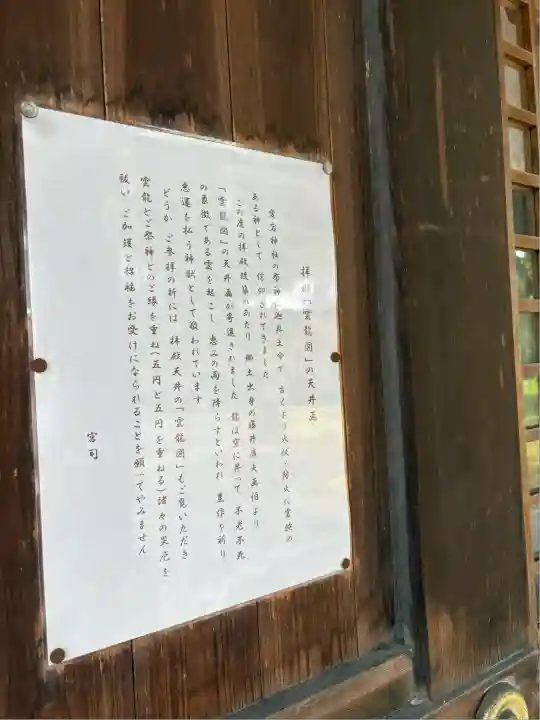 拝殿「雲龍図」の天井画
愛宕神社の祭神 迦具土命で 古くより火伏・防火に霊験の
ある神として 信仰されてきました
この度の拝殿改築にあたり 郷土出身の 画伯より
「雲龍図」の天井画が寄進されました 龍は空に昇って 不老不死
の象徴である雲を起こし 恵みの雨を降らすといわれ 豊作を祈り
悪運を払う神獣として敬われています
どうか ご参拝の折には 拝殿天井の「雲龍図」もご覧いただき
雲龍とご祭神とのご縁を重ね(五円と五円を重ねる)諸々の災厄を
祓い ご加護と招福をお受けになられることを願ってやみません
宮司